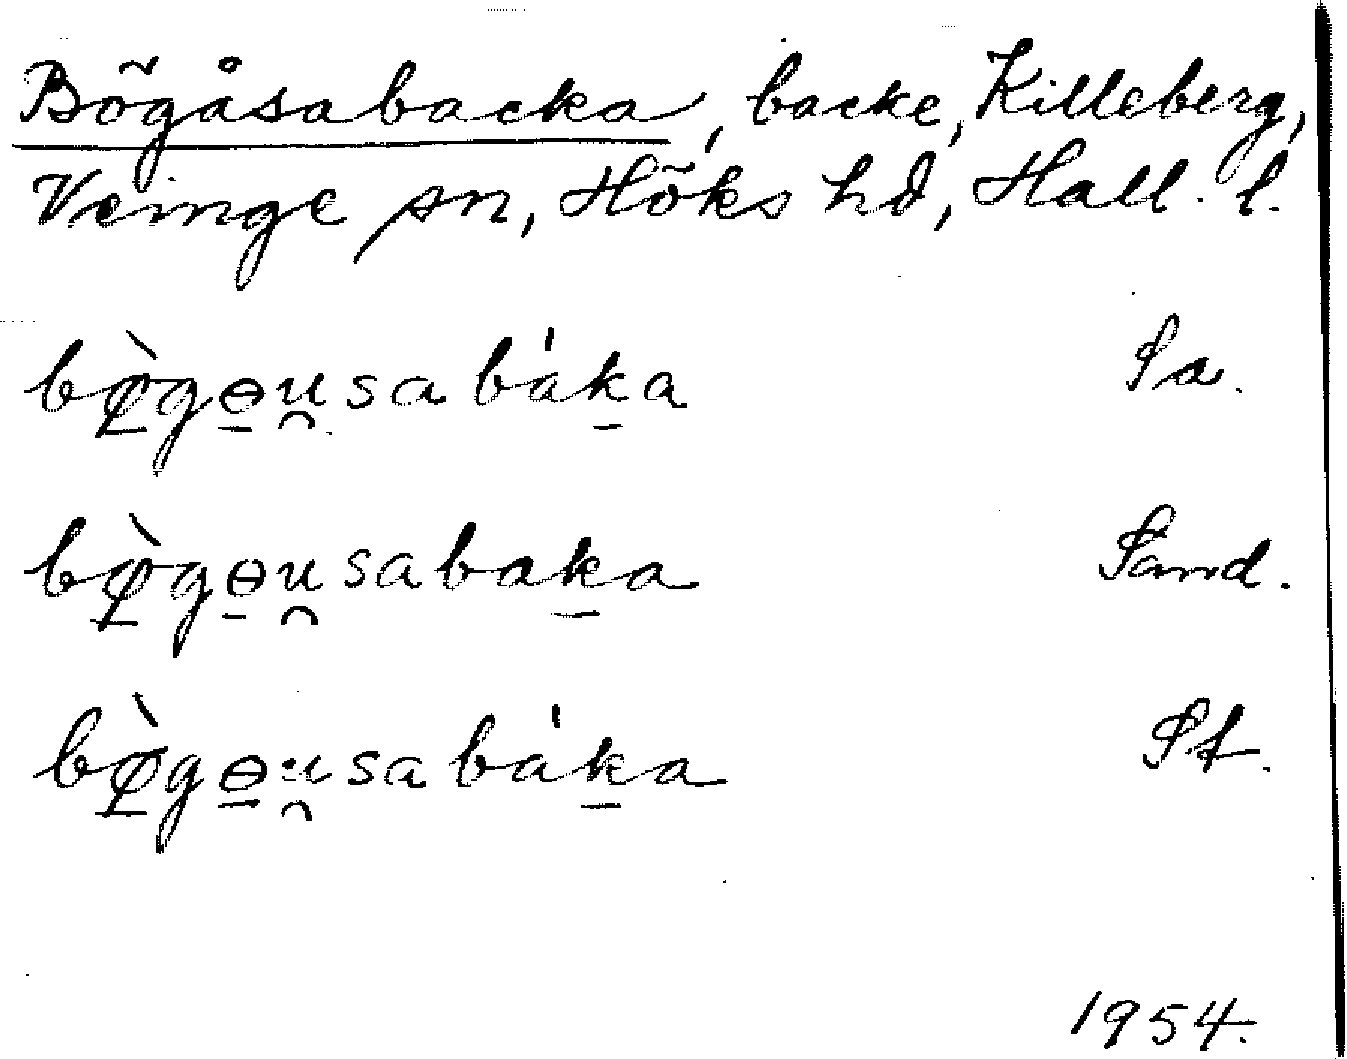 Bögåsabacka, backe, Killeberg,
Veinge sn, Höks hd, Hall. l.
bø̱̀gɵ̱u̯sabáḵa Sa.
bø̱̀gɵ̱u̯sabaḵa Sand.
bø̱̀gɵ̱u̯sabáḵa St.
1954.